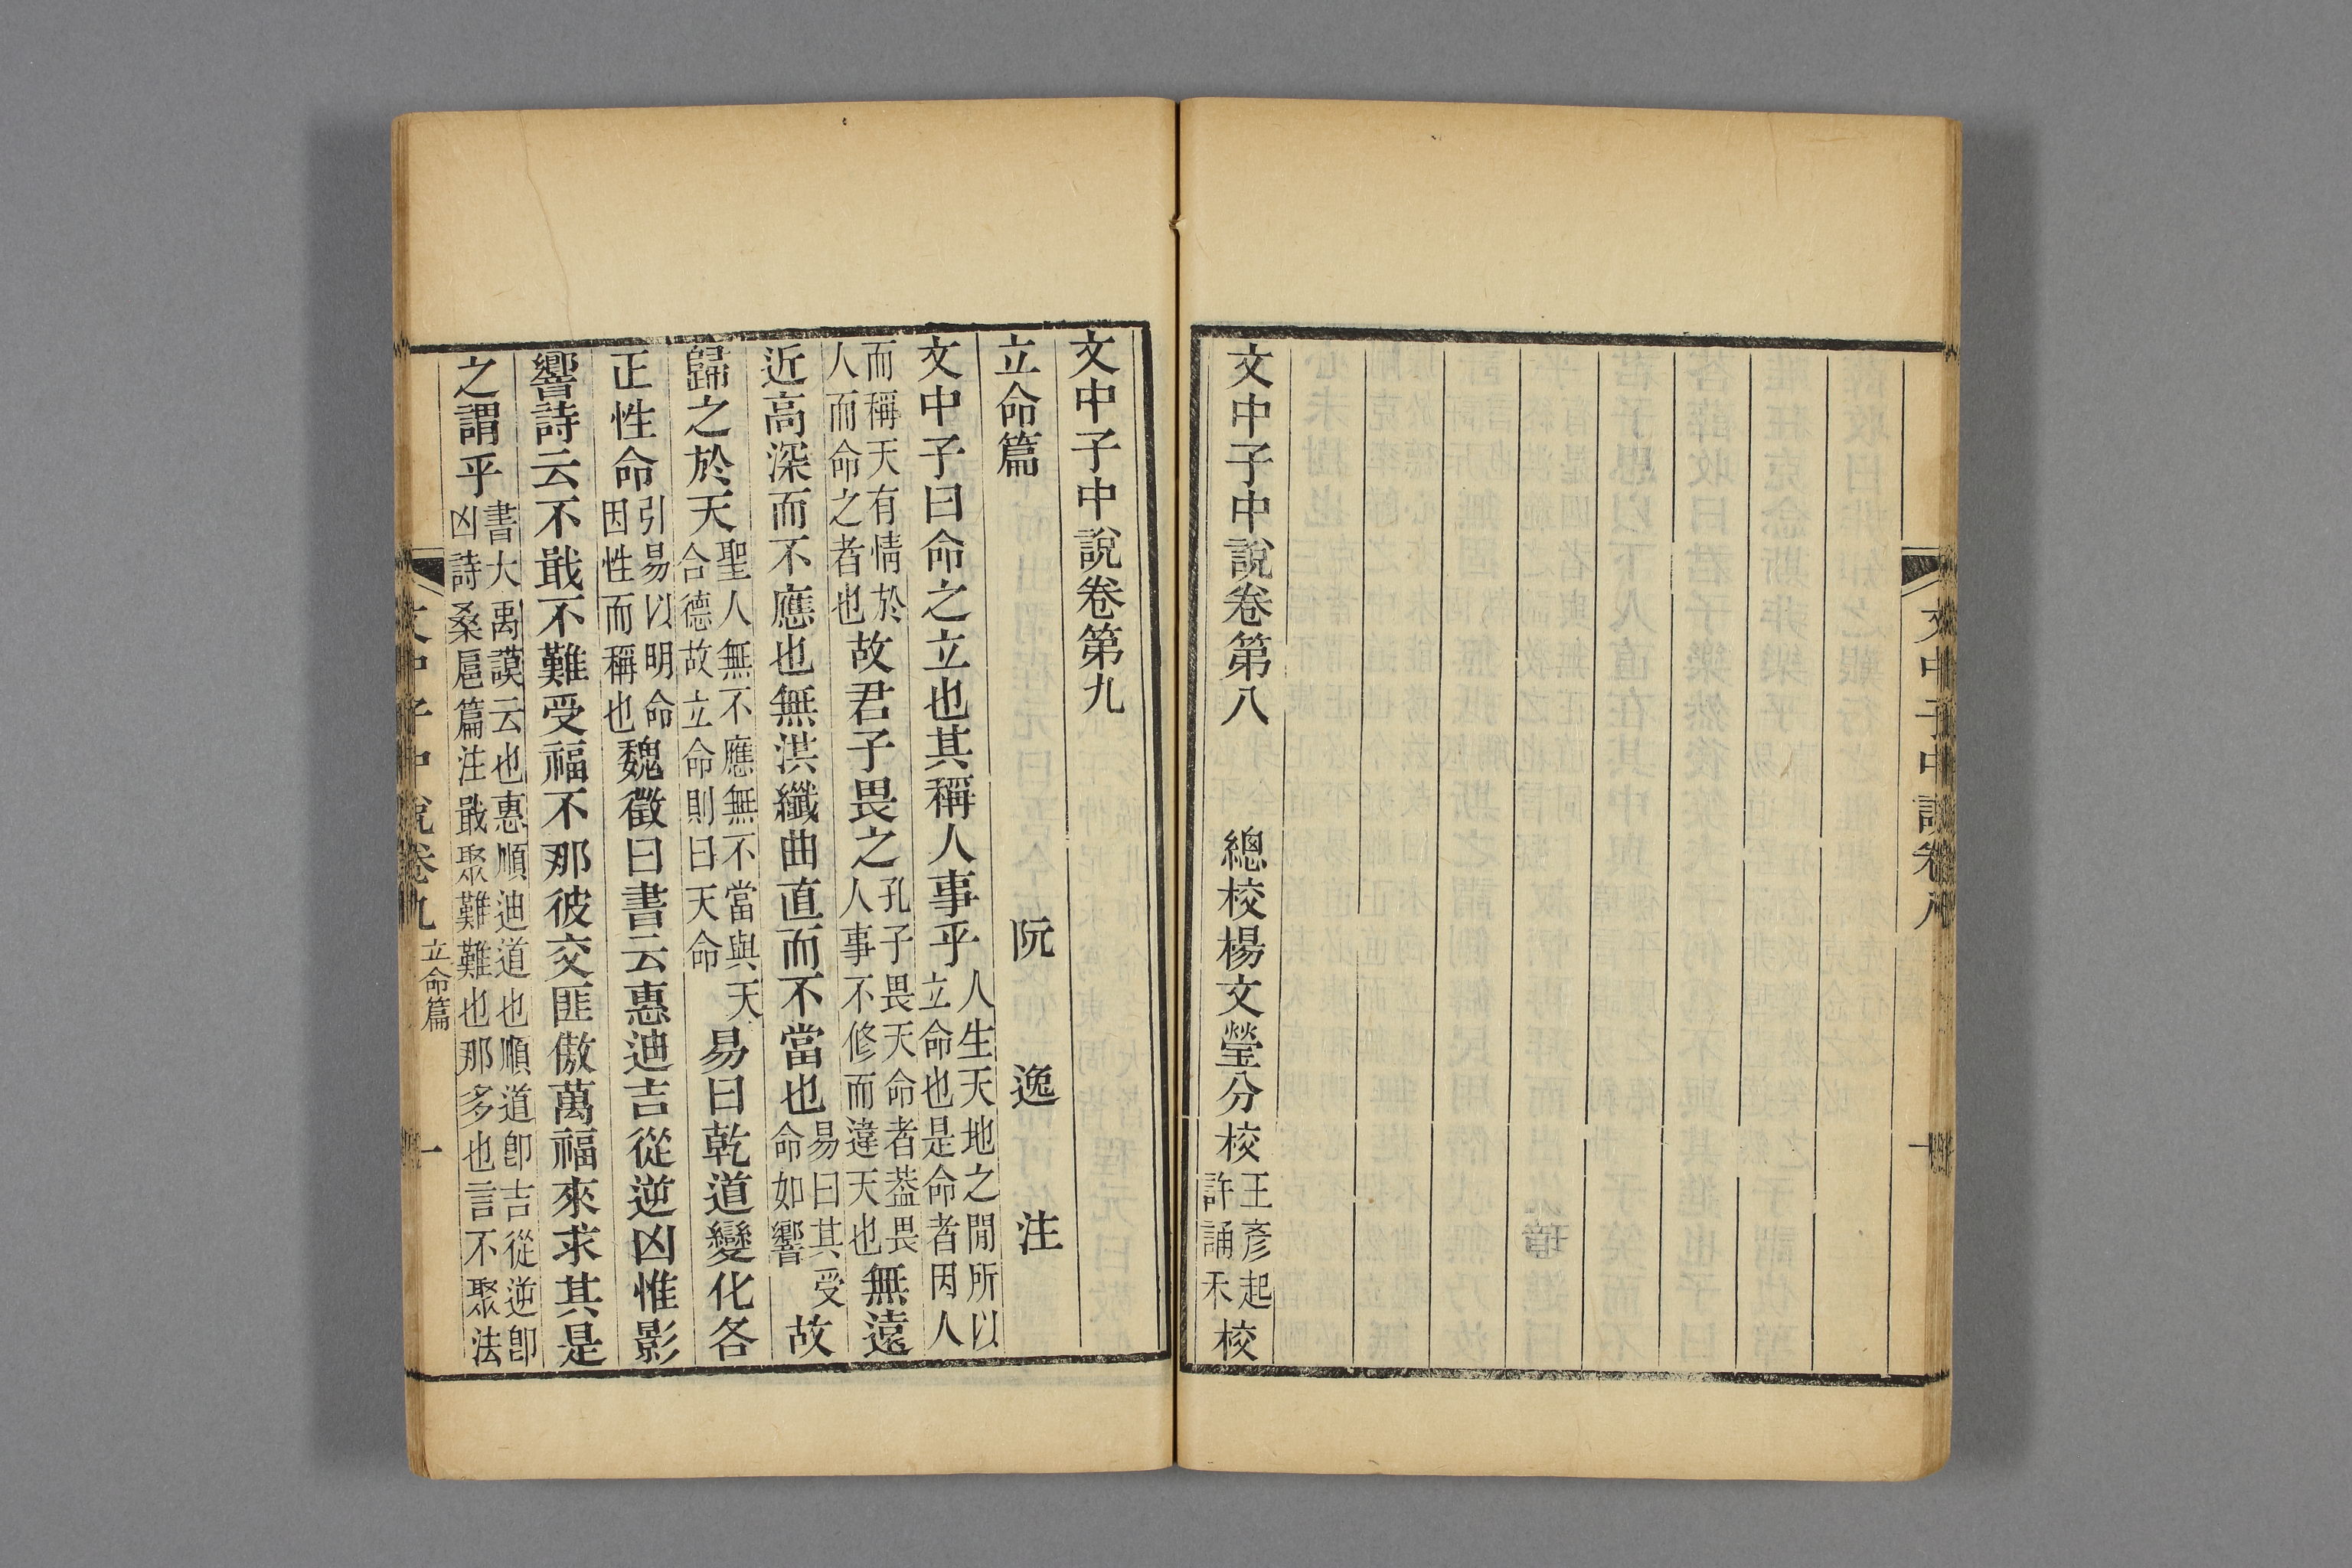 文中子中說卷八
十
文中子中說卷第八　總校楊文瑩分校王彥起許誦禾校
文中子中說卷第九
立命篇　阮　逸　注
文中子曰命之立也其稱人事乎人生天地之閒所以立命也是命者因人
而稱天有情於人而命之者也故君子畏之孔子畏天命者葢畏人事不修而違天也無遠
近高深而不應也無洪纖曲直而不當也易曰其受命如響故
歸之於天聖人無不應無不當與天合德故立命則曰天命易曰乾道變化各
正性命引易以明命因性而稱也魏徵曰書云惠迪吉從逆凶惟影
響詩云不戢不難受福不那彼交匪傲萬福來求其是
之謂乎書大禹謨云也惠順迪道也順道卽吉從逆卽凶詩桑扈篇注戢聚難難也那多也言不聚法
文中子中說卷九
立命篇
一